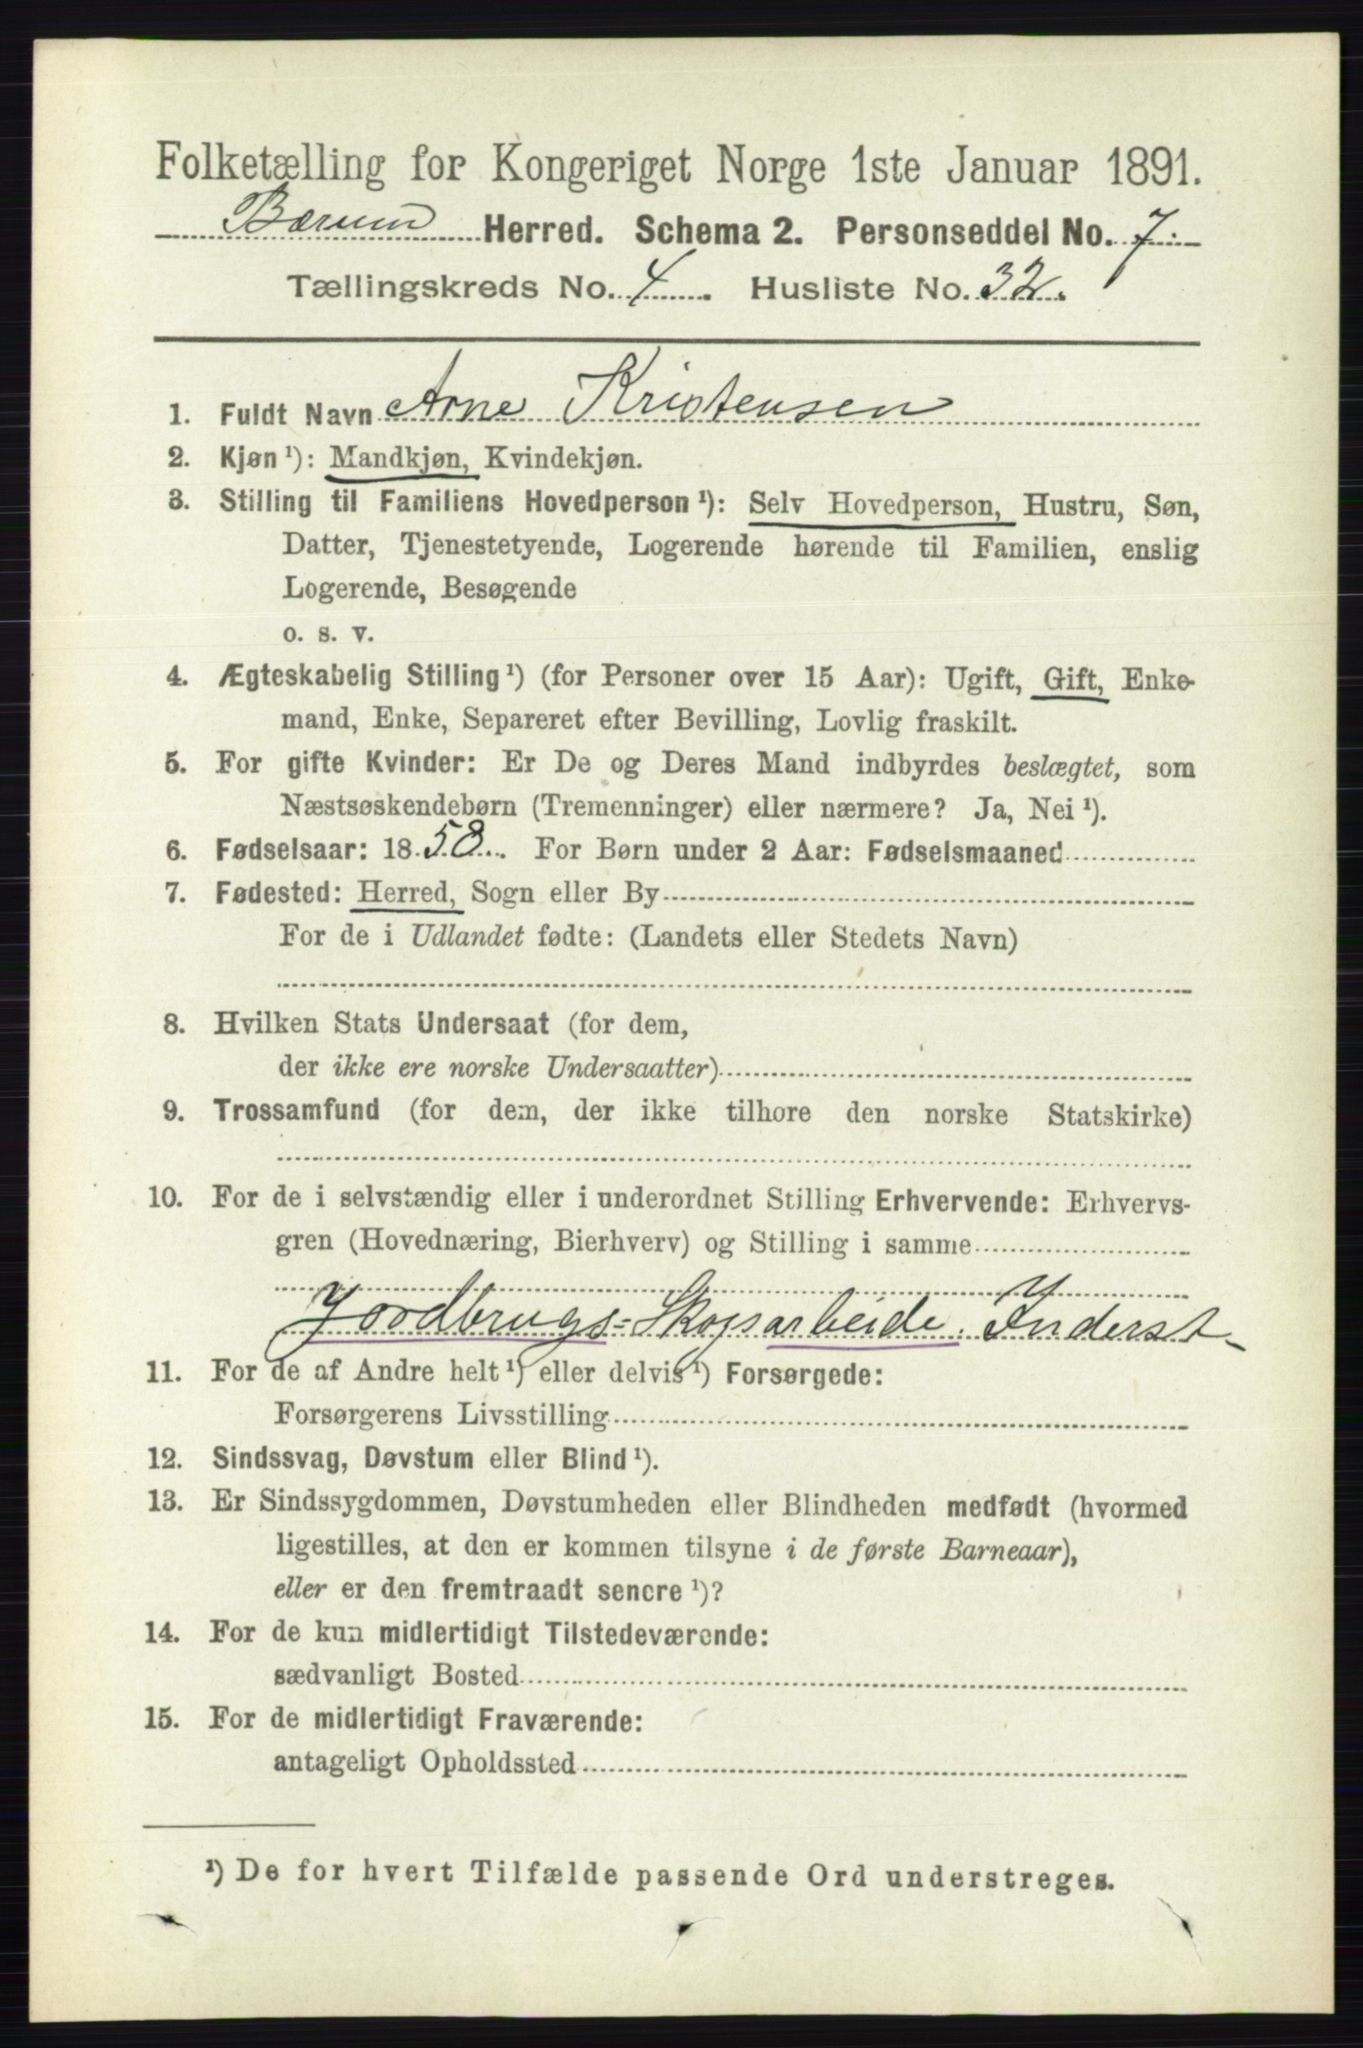 Folketælling for Kongeriget Norge 1ste Januar 1891.
Bærum Herred. Schema 2. Personseddel No. 7.
Tællingskreds No. 4. Husliste No. 32.
1. Fuldt Navn Arne Kristensen
2. Kjøn ¹): Mandkjøn, Kvindekjøn.
3. Stilling til Familiens Hovedperson ¹): Selv Hovedperson, Hustru, Søn,
Datter, Tjenestetyende, Logerende hørende til Familien, enslig
Logerende, Besøgende
o. s. v.
4. Ægteskabelig Stilling ¹) (for Personer over 15 Aar): Ugift, Gift, Enke-
mand, Enke, Separeret efter Bevilling, Lovlig fraskilt.
5. For gifte Kvinder: Er De og Deres Mand indbyrdes beslægtet, som
Næstsøskendebørn (Tremenninger) eller nærmere? Ja, Nei ¹).
6. Fødselsaar: 1858. For Børn under 2 Aar: Fødselsmaaned
7. Fødested: Herred, Sogn eller By
For de i Udlandet fødte: (Landets eller Stedets Navn)
8. Hvilken Stats Undersaat (for dem,
der ikke ere norske Undersaatter)
9. Trossamfund (for dem, der ikke tilhøre den norske Statskirke)
10. For de i selvstændig eller i underordnet Stilling Erhvervende: Erhvervs-
gren (Hovednæring, Bierhverv) og Stilling i samme
Jordbrugs- Skogsarbeide. Inderst
11. For de af Andre helt ¹) eller delvis ¹) Forsørgede:
Forsørgerens Livsstilling
12. Sindssvag, Døvstum eller Blind ¹).
13. Er Sindssygdommen, Døvstumheden eller Blindheden medfødt (hvormed
ligestilles, at den er kommen tilsyne i de første Barneaar),
eller er den fremtraadt senere ¹)?
14. For de kun midlertidigt Tilstedeværende:
sædvanligt Bosted
15. For de midlertidigt Fraværende:
antageligt Opholdssted
¹) De for hvert Tilfælde passende Ord understreges.